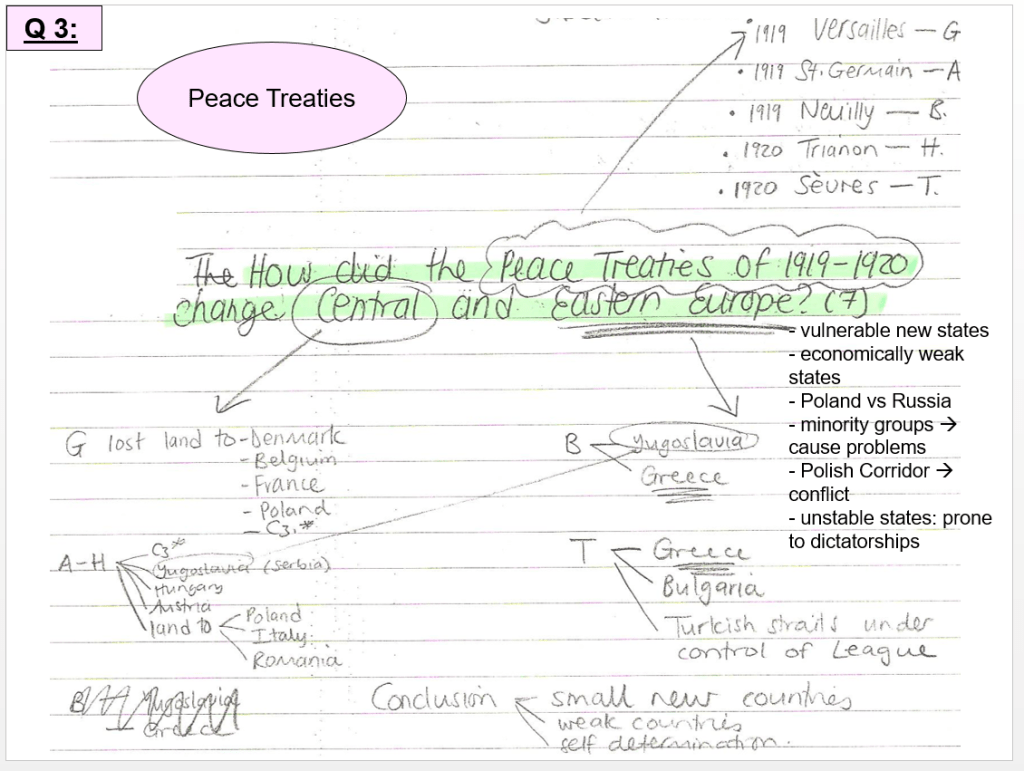 Q 3:
Peace Treaties
• 1919 Versailles — G
• 1919 St. Germain — A
• 1919 Neuilly — B.
• 1920 Trianon — H.
• 1920 Sèvres — T.
The How did the Peace Treaties of 1919-1920
change Central and Eastern Europe? (7)
- vulnerable new states
- economically weak
states
- Poland vs Russia
- minority groups →
cause problems
- Polish Corridor →
conflict
- unstable states: prone
to dictatorships
G lost land to - Denmark
- Belgium
- France
- Poland
- C3.*
A-H
C3*
Yugoslavia (Serbia)
Hungary
Austria
land to
Poland
Italy
Romania
B
Yugoslavia
Greece
T
Greece
Bulgaria
Turkish straits under
control of League
B Yugoslavia
Greece
Conclusion
small new countries
weak countries
self determination.